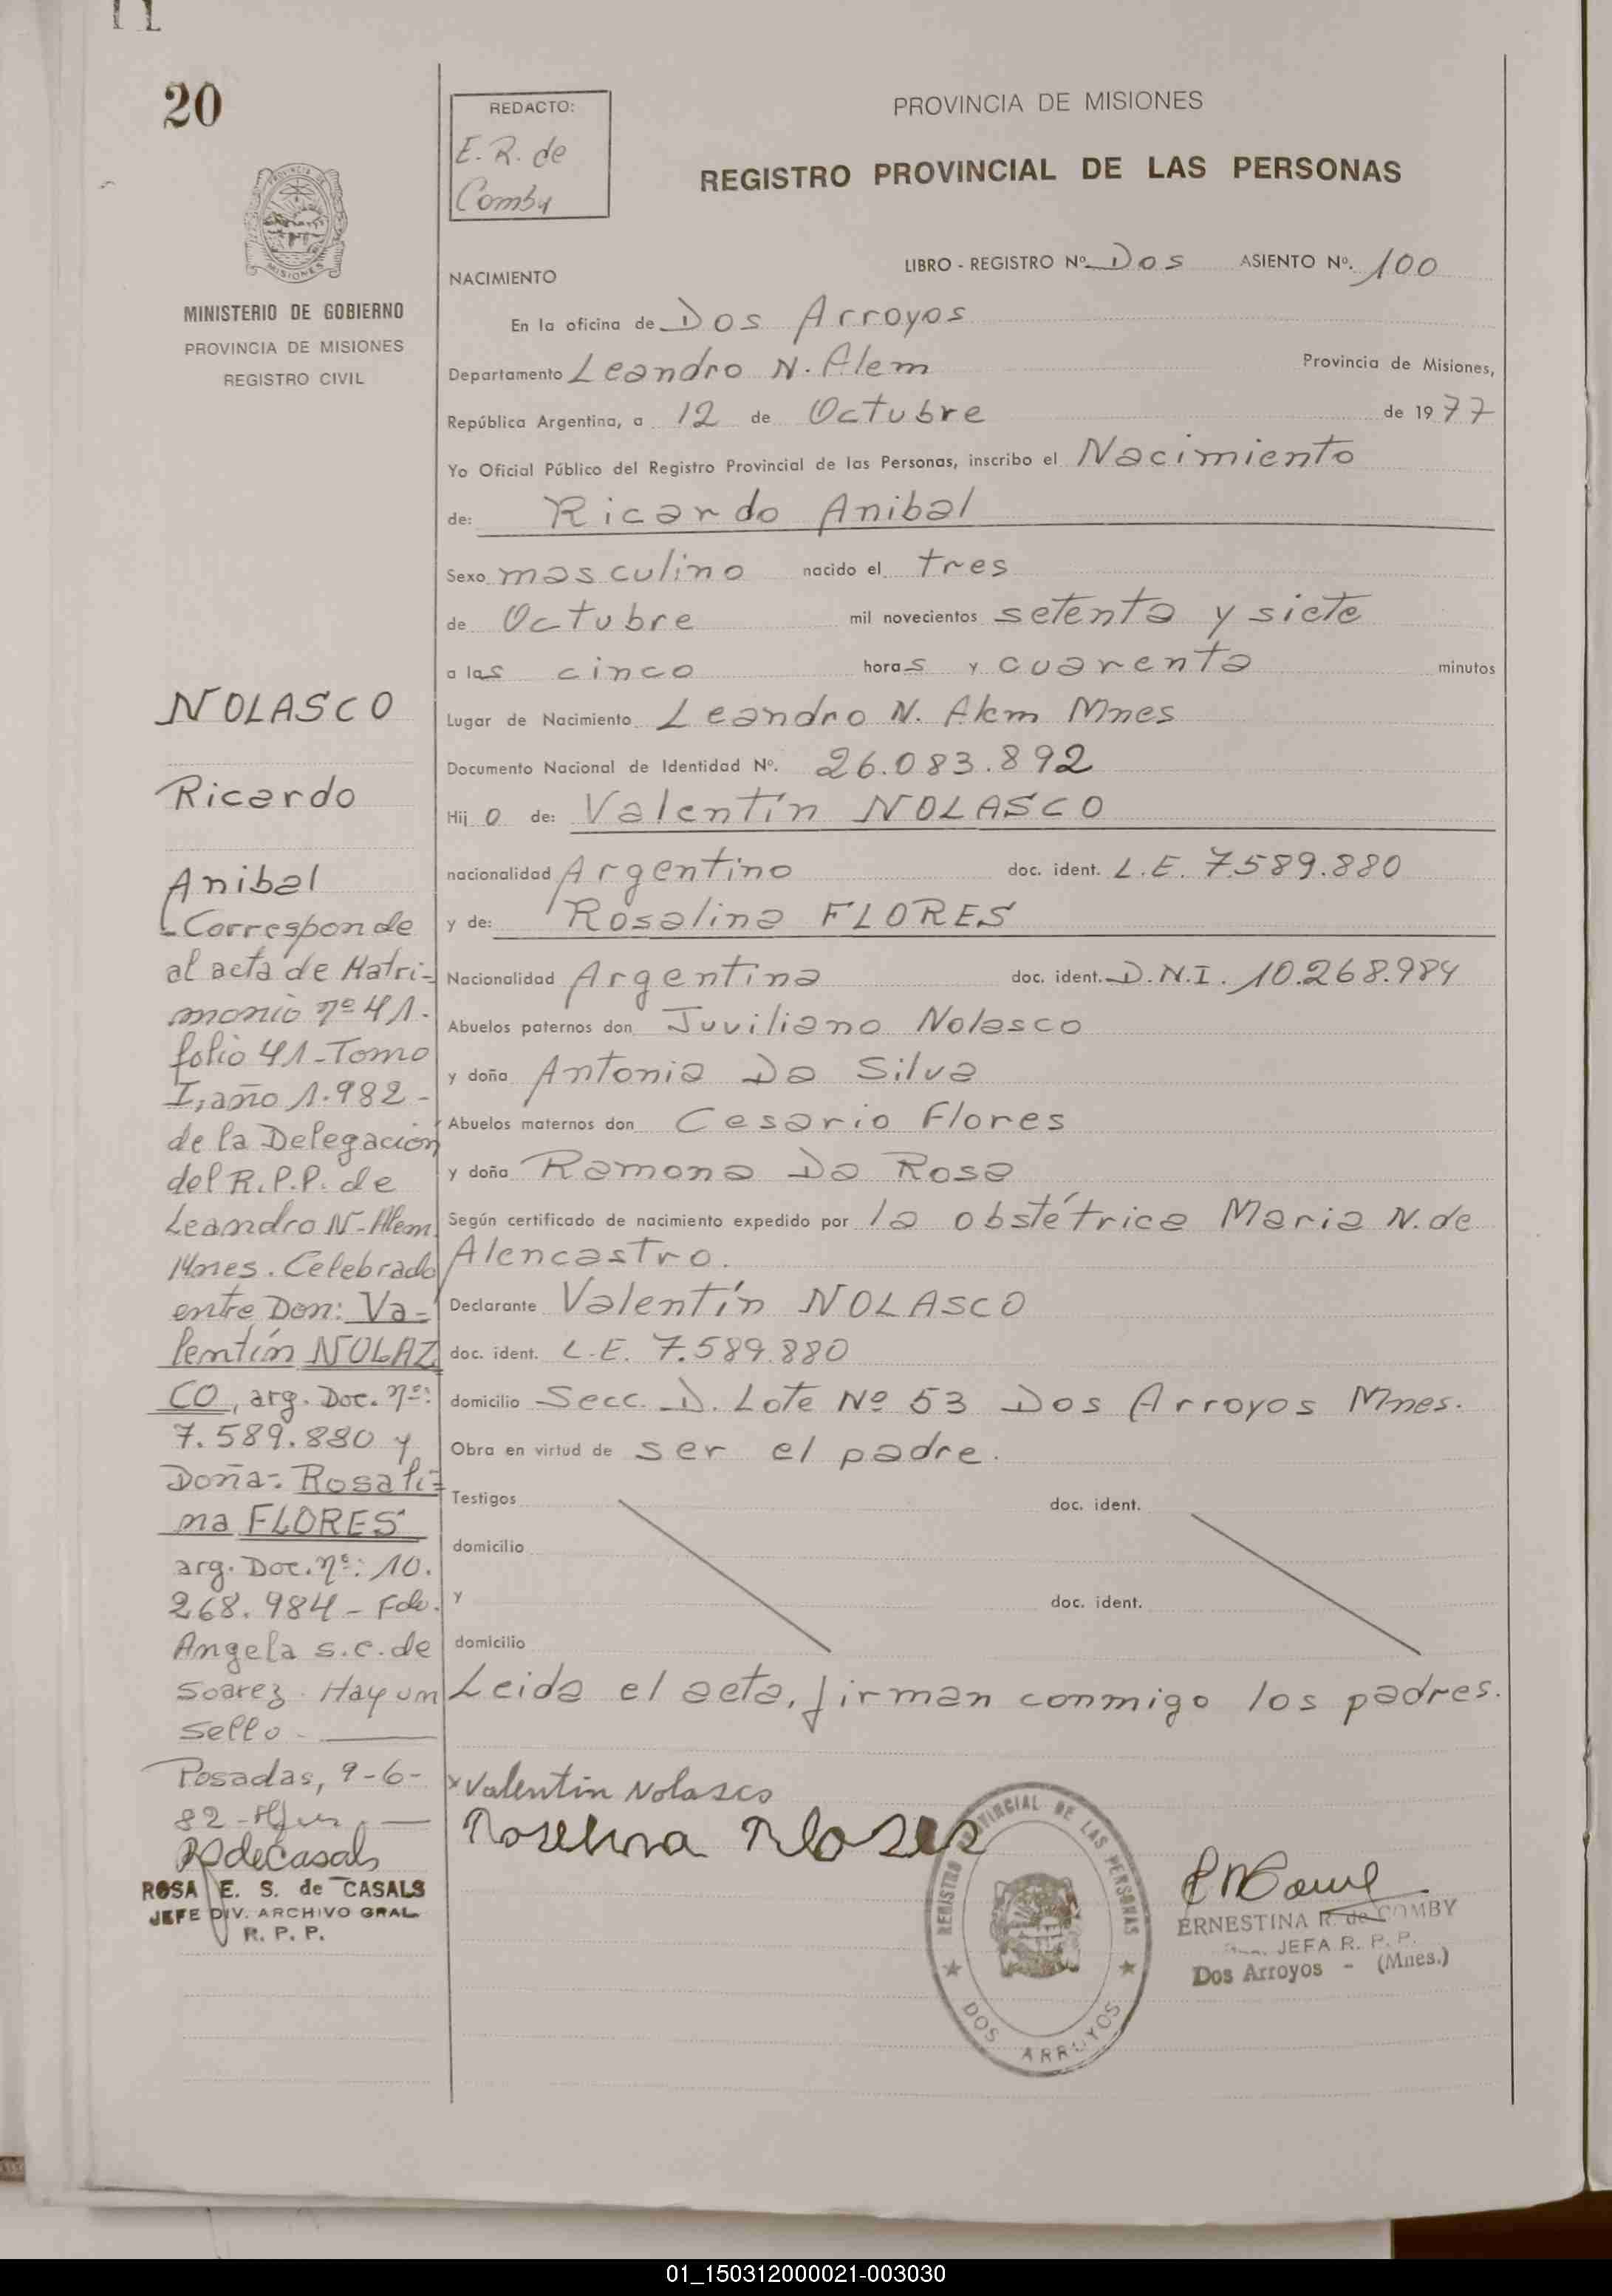 20
PROVINCIA DE MISIONES
MINISTERIO DE GOBIERNO
PROVINCIA DE MISIONES
REGISTRO CIVIL
NOLASCO
Ricardo
Anibal
Corresponde
al acta de Matri-
monio nº 41.
folio 41-Tomo
I, año 1.982-
de la Delegación
del R.P.P. de
Leandro N-Alem
Mnes. Celebrado
entre Don: Va-
lentín NOLAZ
CO, arg. Doc. nº:
7.589.880 y
Doña: Rosali=
na FLORES
arg. Doc. nº: 10.
268.984 - Fdo.
Angela s.c. de
Soarez. Hay un
sello.
Posadas, 9-6-
82-
RSdeCasals
ROSA E. S. de CASALS
JEFE DIV. ARCHIVO GRAL
R. P. P.
REDACTO:
E. R. de
Comby
PROVINCIA DE MISIONES
REGISTRO PROVINCIAL DE LAS PERSONAS
LIBRO - REGISTRO Nº Dos ASIENTO Nº. 100
NACIMIENTO
En la oficina de Dos Arroyos
Departamento Leandro N. Alem Provincia de Misiones,
República Argentina, a 12 de Octubre de 1977
Yo Oficial Público del Registro Provincial de las Personas, inscribo el Nacimiento
de: Ricardo Anibal
Sexo masculino nacido el tres
de Octubre mil novecientos setenta y siete
a las cinco horas y cuarenta minutos
Lugar de Nacimiento Leandro N. Alem Mnes
Documento Nacional de Identidad Nº. 26.083.892
Hij o de: Valentín NOLASCO
nacionalidad Argentino doc. ident. L.E. 7.589.880
y de: Rosalina FLORES
Nacionalidad Argentina doc. ident. D.N.I. 10.268.984
Abuelos paternos don Juviliano Nolasco
y doña Antonia Da Silva
Abuelos maternos don Cesario Flores
y doña Ramona Da Rosa
Según certificado de nacimiento expedido por la obstétrica Maria N. de
Alencastro.
Declarante Valentín NOLASCO
doc. ident. L.E. 7.589.880
domicilio Secc. D. Lote Nº 53 Dos Arroyos Mnes.
Obra en virtud de ser el padre.
Testigos doc. ident.
domicilio
y doc. ident.
domicilio
Leida el acta, firman conmigo los padres.
x Valentin Nolasco
REGISTRO PROVINCIAL DE LAS PERSONAS
DOS ARROYOS
ERNESTINA R. de COMBY
JEFA R. P. P.
Dos Arroyos - (Mnes.)
01_150312000021-003030